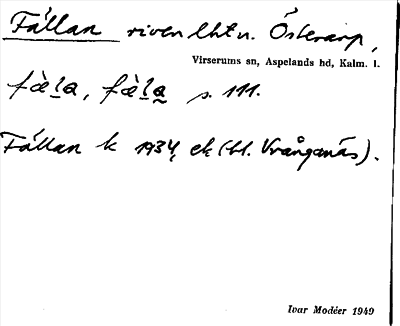 Fállan riven lht u. Österarp,
Virserums sn, Aspelands hd, Kalm. l.
fæ̀l̲a, fæ̀l̲a̲ s. 111.
Fállan k 1934, ek (bl. Vrånganäs).
Ivar Modéer 1949